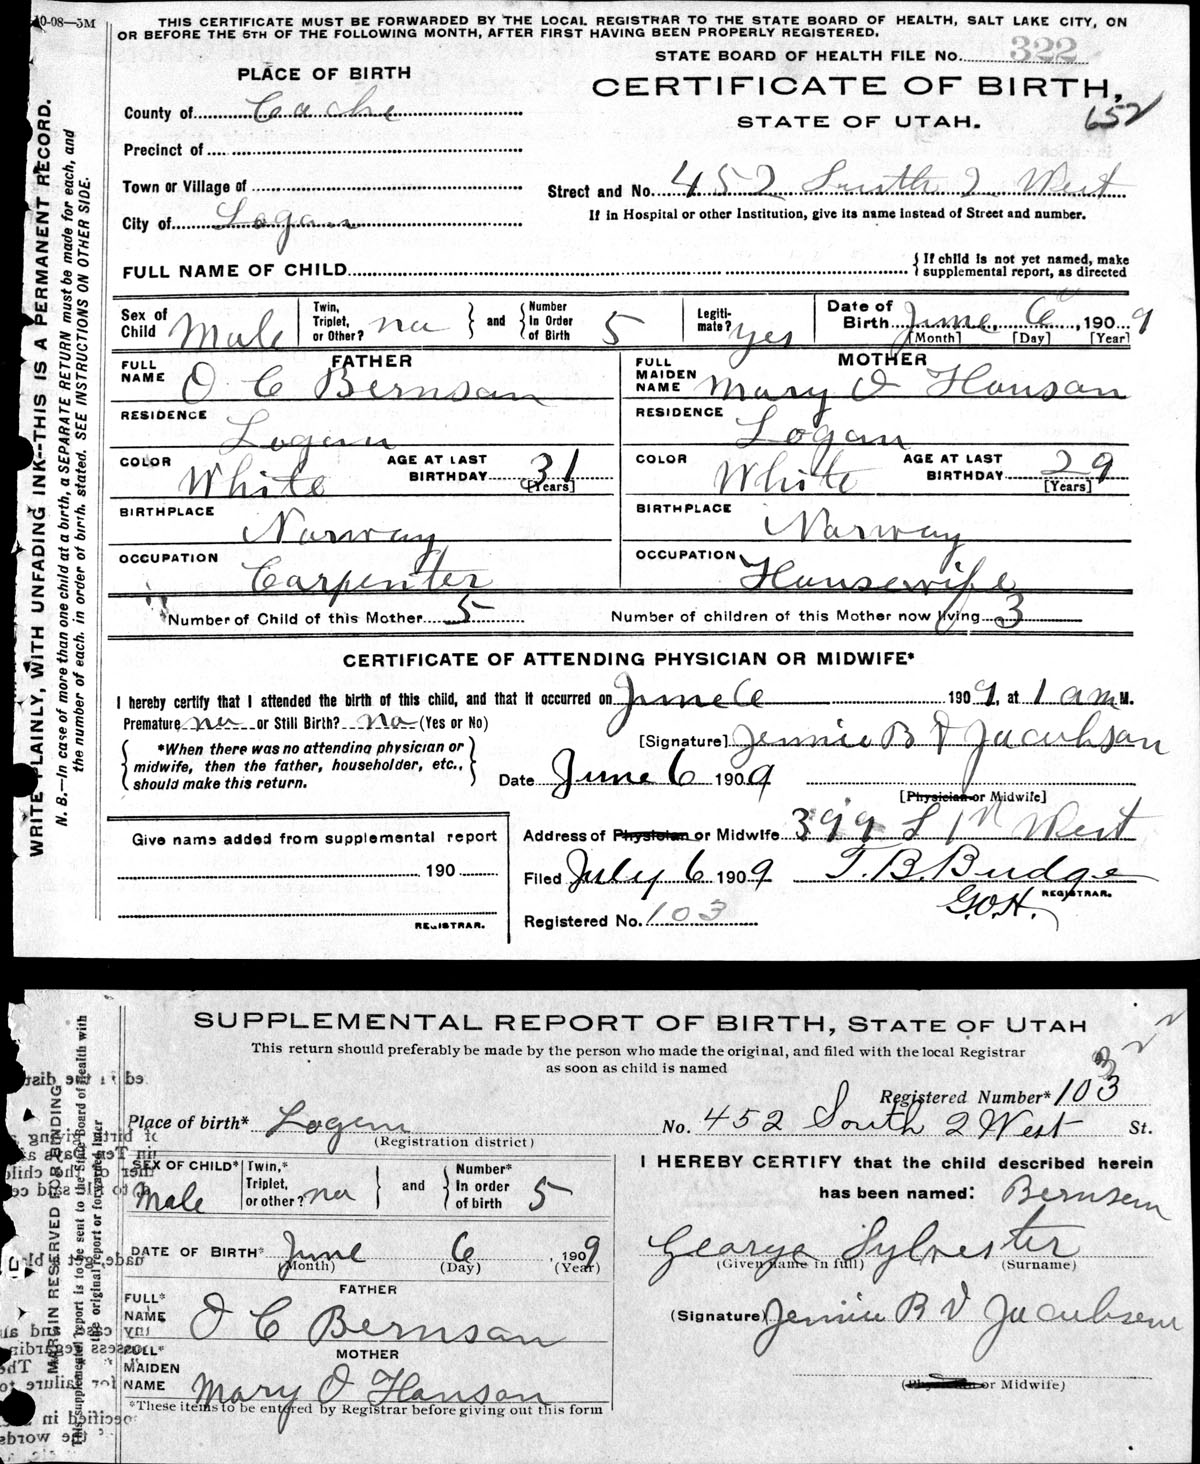 10-08—5M
THIS CERTIFICATE MUST BE FORWARDED BY THE LOCAL REGISTRAR TO THE STATE BOARD OF HEALTH, SALT LAKE CITY, ON
OR BEFORE THE 5TH OF THE FOLLOWING MONTH, AFTER FIRST HAVING BEEN PROPERLY REGISTERED.
STATE BOARD OF HEALTH FILE No. 322
PLACE OF BIRTH
CERTIFICATE OF BIRTH,
652
STATE OF UTAH.
County of Cache
Precinct of
Town or Village of
Street and No. 452 South 2 West
If in Hospital or other Institution, give its name instead of Street and number.
City of Logan
FULL NAME OF CHILD
{ If child is not yet named, make
supplemental report, as directed
Sex of Child Male
Twin, Triplet, or Other? no } and { Number In Order of Birth 5
Legiti-mate? yes
Date of Birth June 6, 1909
[Month] [Day] [Year]
FATHER
FULL NAME O C Bernson
MOTHER
FULL MAIDEN NAME Mary O Hanson
RESIDENCE Logan
RESIDENCE Logan
COLOR White AGE AT LAST BIRTHDAY 31 [Years]
COLOR White AGE AT LAST BIRTHDAY 29 [Years]
BIRTHPLACE Norway
BIRTHPLACE Norway
OCCUPATION Carpenter
OCCUPATION Housewife
Number of Child of this Mother 5 Number of children of this Mother now living 3
CERTIFICATE OF ATTENDING PHYSICIAN OR MIDWIFE*
I hereby certify that I attended the birth of this child, and that it occurred on June 6 1909, at 1 am M.
Premature no or Still Birth? no (Yes or No)
{ *When there was no attending physician or midwife, then the father, householder, etc., should make this return. }
[Signature] Jennie B Jacobson
Date June 6 1909
[Physician or Midwife]
Give name added from supplemental report
190
REGISTRAR.
Address of Physician or Midwife 399 S 1st West
Filed July 6 1909 T. B. Budge
REGISTRAR.
G.O.H.
Registered No. 103
WRITE PLAINLY, WITH UNFADING INK--THIS IS A PERMANENT RECORD.
N. B.—In case of more than one child at a birth, a SEPARATE RETURN must be made for each, and
the number of each, in order of birth, stated. SEE INSTRUCTIONS ON OTHER SIDE.
SUPPLEMENTAL REPORT OF BIRTH, STATE OF UTAH
This return should preferably be made by the person who made the original, and filed with the local Registrar
as soon as child is named
Registered Number* 103
Place of birth* Logan No. 452 South 2 West St.
(Registration district)
SEX OF CHILD* Male
Twin,* Triplet, or other? no } and { Number* In order of birth 5
I HEREBY CERTIFY that the child described herein
has been named: Bernsen
DATE OF BIRTH* June 6, 1909
(Month) (Day) (Year)
George Sylvester
(Given name in full) (Surname)
FATHER
FULL* NAME O C Bernson
(Signature) Jennie B Jacobsen
MOTHER
FULL* MAIDEN NAME Mary O Hanson
(Physician or Midwife)
*These items to be entered by Registrar before giving out this form
MARGIN RESERVED FOR BINDING
This supplemental report is to be sent to the State Board of Health with
the original report or forwarded later